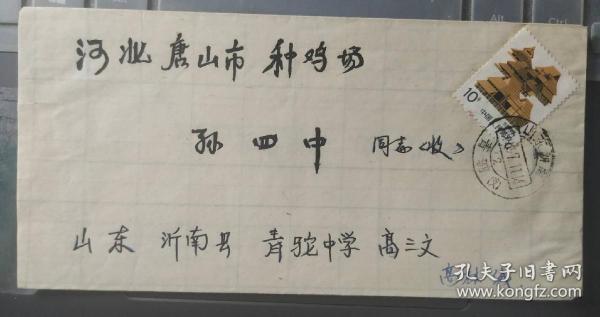 河北唐山市 种鸡场
孙四中 同志(收)
山东 沂南县 青驼中学 高三文
高
10分
中国
孔夫子旧书网
www.kongfz.com
Alt
Ctrl